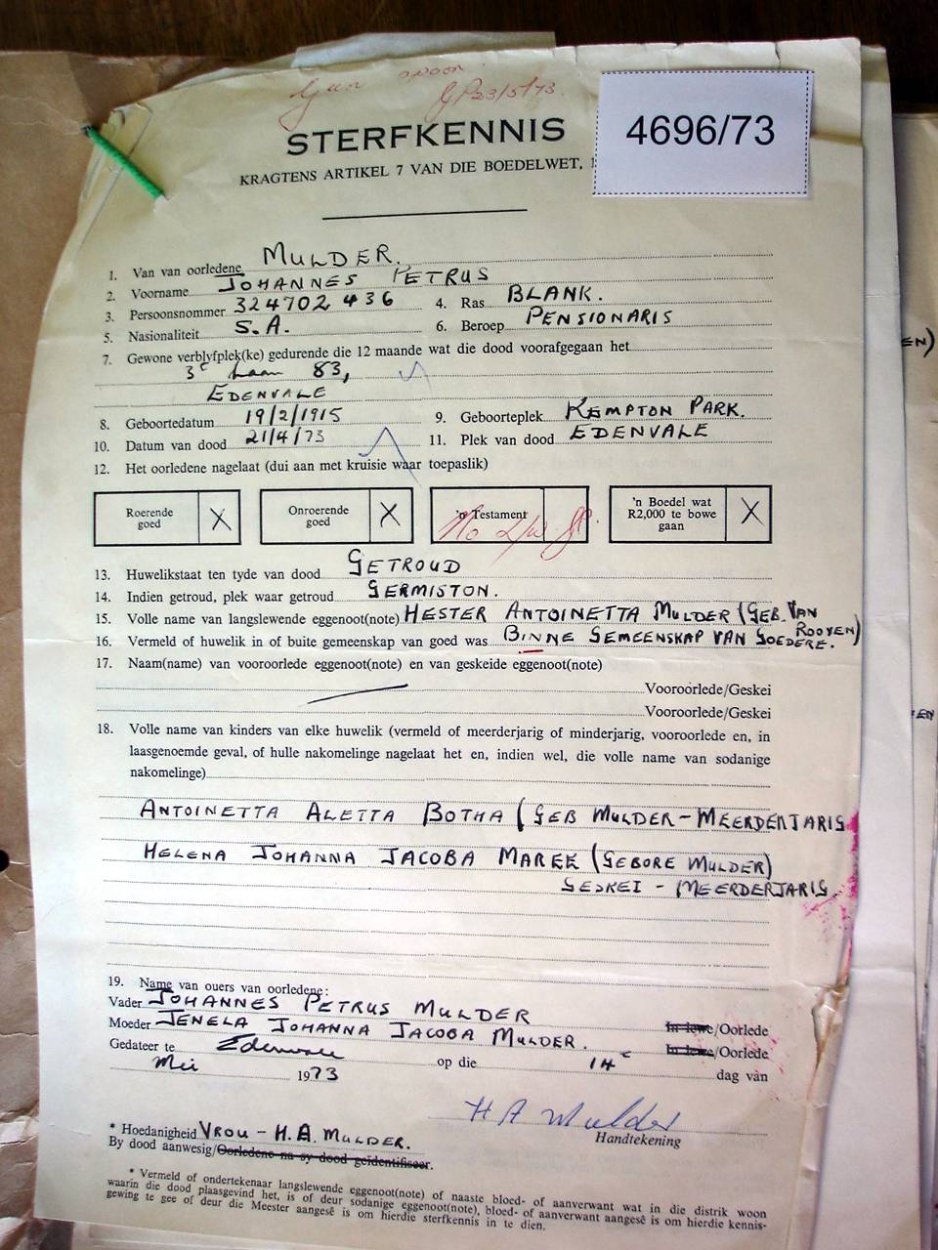 GP 23/5/73.
4696/73
STERFKENNIS
KRAGTENS ARTIKEL 7 VAN DIE BOEDELWET, 1
1. Van van oorledene MULDER.
2. Voorname JOHANNES PETRUS
3. Persoonsnommer 324702 436 4. Ras BLANK.
5. Nasionaliteit S.A. 6. Beroep PENSIONARIS
7. Gewone verblyfplek(ke) gedurende die 12 maande wat die dood voorafgegaan het
3e Laan 83,
EDENVALE
8. Geboortedatum 19/2/1915 9. Geboorteplek KEMPTON PARK.
10. Datum van dood 21/4/73 11. Plek van dood EDENVALE
12. Het oorledene nagelaat (dui aan met kruisie waar toepaslik)
Roerende goed X Onroerende goed X 'n Testament No 'n Boedel wat R2,000 te bowe gaan X
13. Huwelikstaat ten tyde van dood GETROUD
14. Indien getroud, plek waar getroud GERMISTON.
15. Volle name van langslewende eggenoot(note) HESTER ANTOINETTA MULDER (GEB. VAN ROOYEN)
16. Vermeld of huwelik in of buite gemeenskap van goed was BINNE GEMEENSKAP VAN GOEDERE.
17. Naam(name) van vooroorlede eggenoot(note) en van geskeide eggenoot(note)
Vooroorlede/Geskei
Vooroorlede/Geskei
18. Volle name van kinders van elke huwelik (vermeld of meerderjarig of minderjarig, vooroorlede en, in
laasgenoemde geval, of hulle nakomelinge nagelaat het en, indien wel, die volle name van sodanige
nakomelinge)
ANTOINETTA ALETTA BOTHA (GEB MULDER - MEERDERJARIG
HELENA JOHANNA JACOBA MAREE (GEBORE MULDER)
GESKEI - MEERDERJARIG.
19. Name van ouers van oorledene:
Vader JOHANNES PETRUS MULDER In lewe/Oorlede
Moeder JENELA JOHANNA JACOBA MULDER. In lewe/Oorlede
Gedateer te Edenvale op die 14e dag van
Mei 1973
H A Mulder
Handtekening
* Hoedanigheid VROU - H.A. MULDER.
By dood aanwesig/Oorledene na sy dood geïdentifiseer.
* Vermeld of ondertekenaar langslewende eggenoot(note) of naaste bloed- of aanverwant wat in die distrik woon
waarin die dood plaasgevind het, is of deur sodanige eggenoot(note), bloed- of aanverwant aangesê is om hierdie kennis-
gewing te gee of deur die Meester aangesê is om hierdie sterfkennis in te dien.